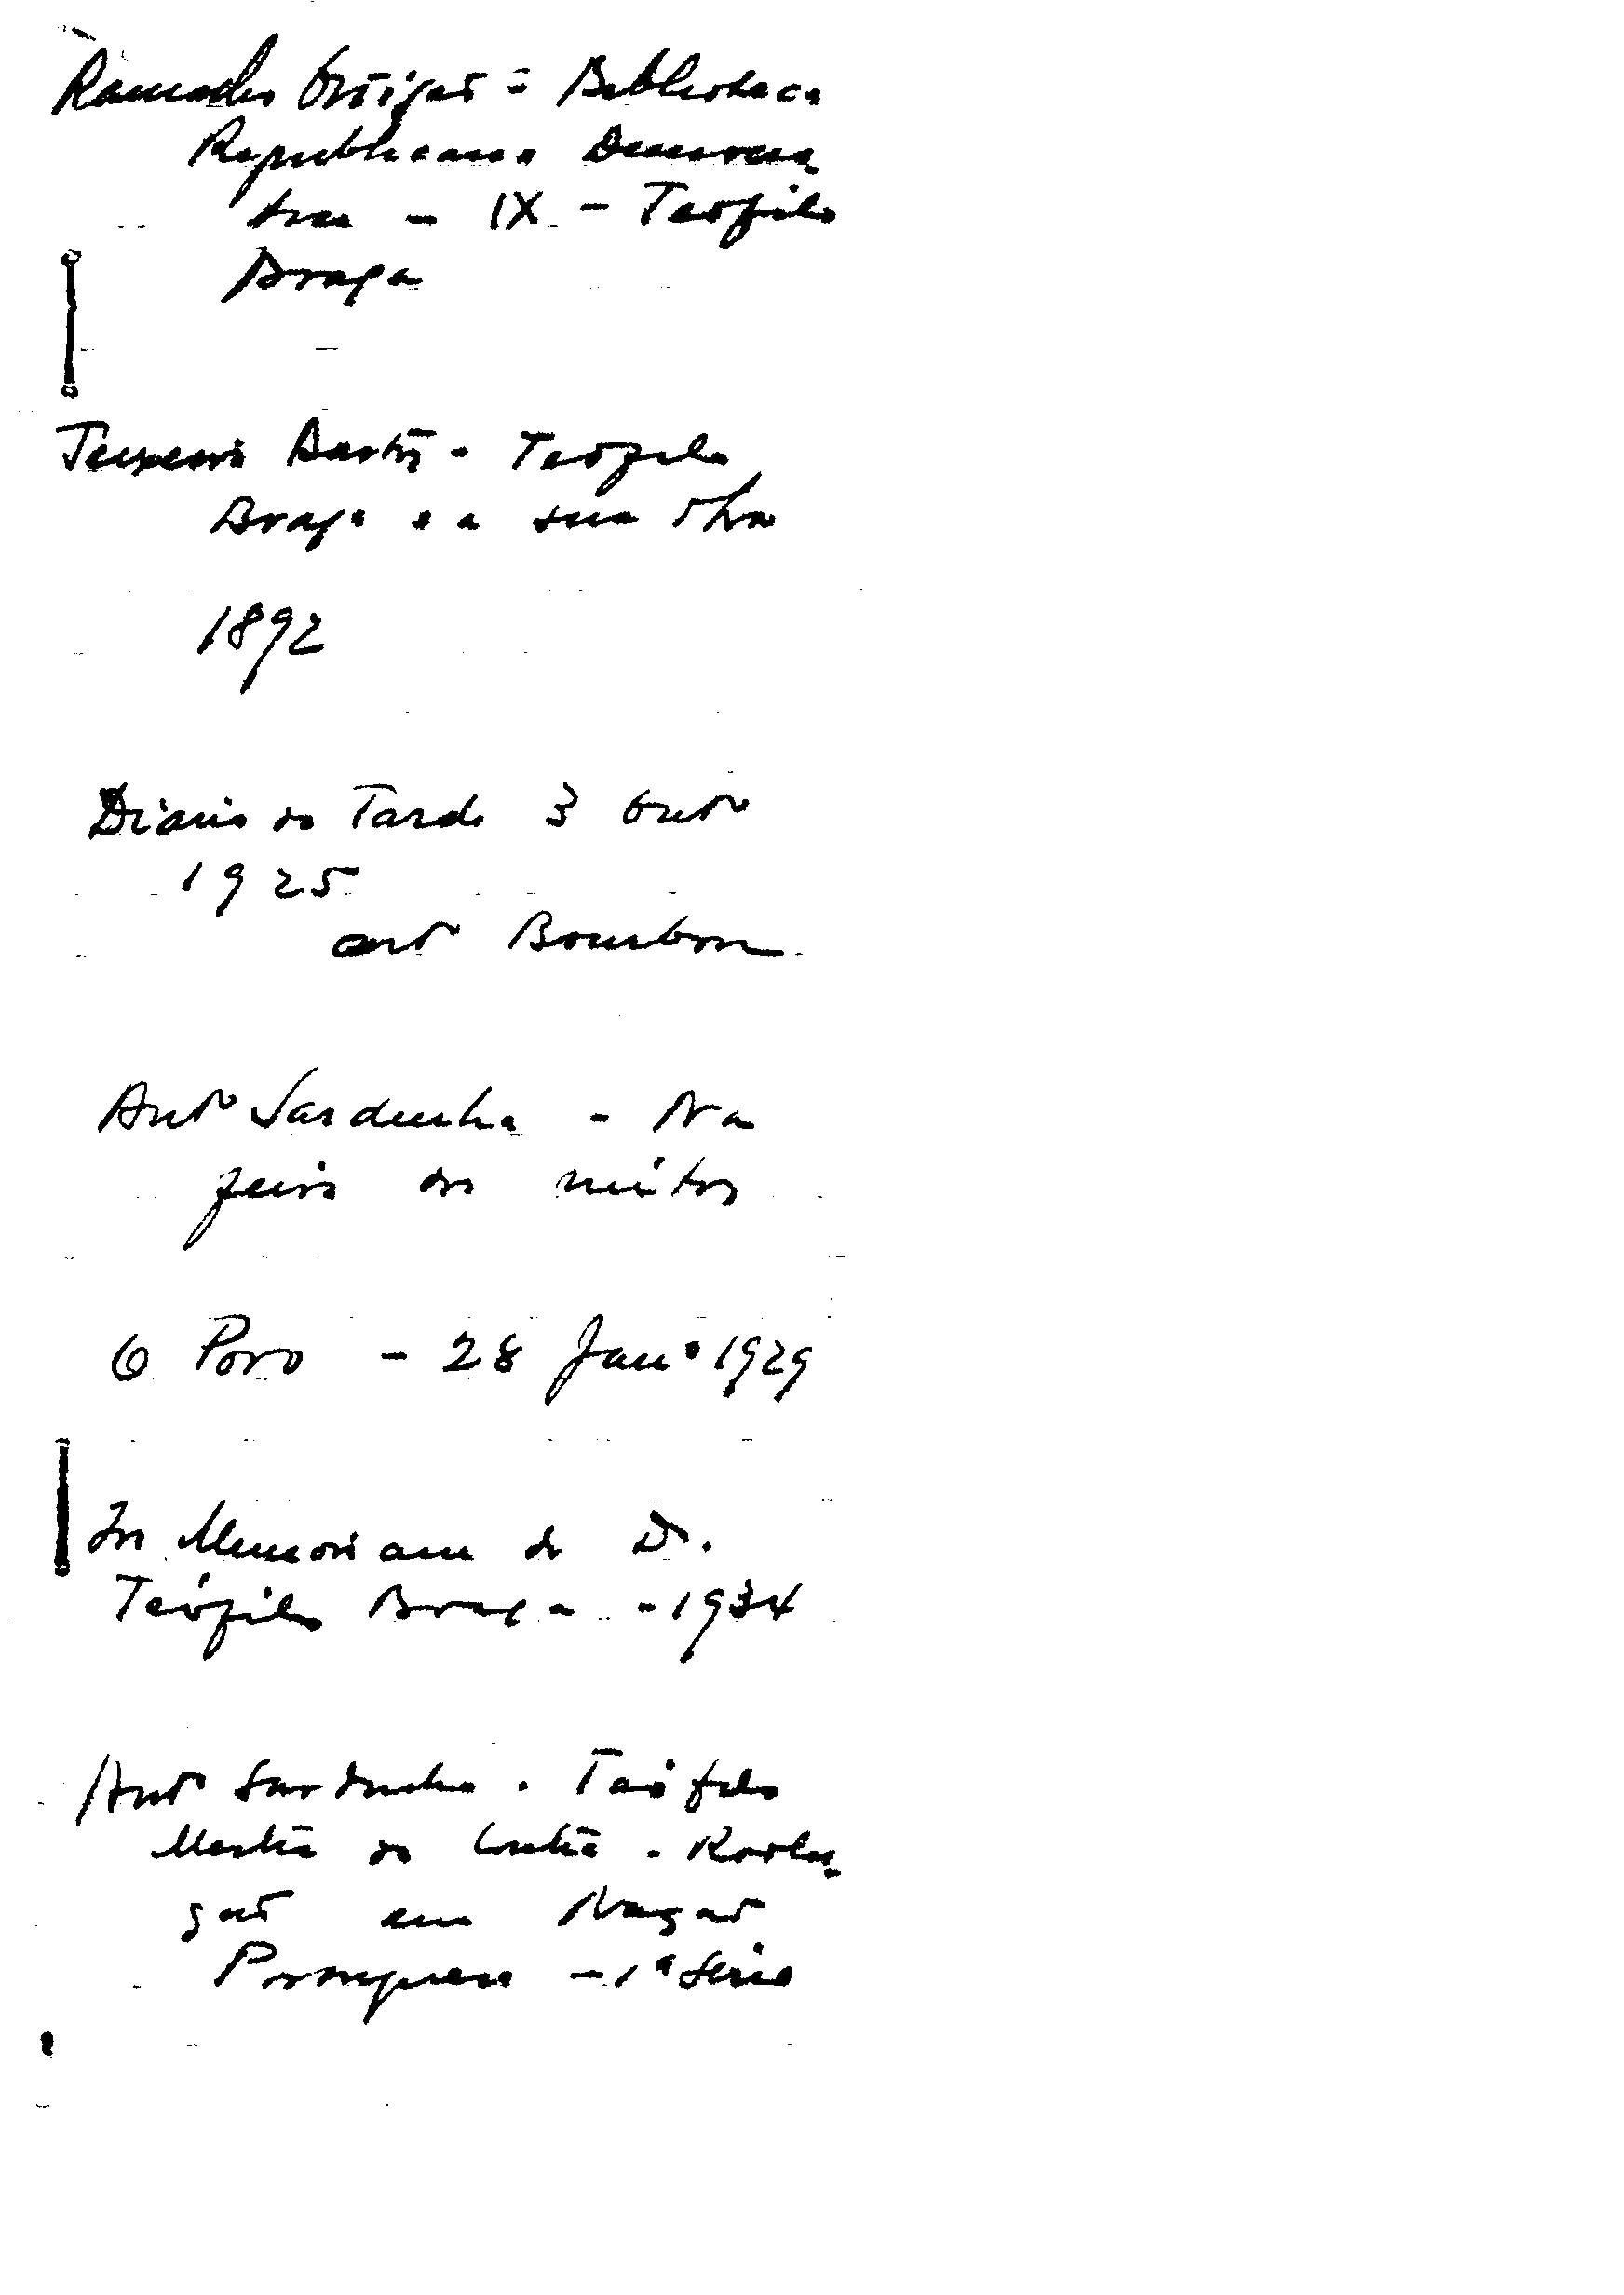 Ramalho Ortigão - Biblioteca
Republicana Democra
tica - IX - Teofilo
Braga
Teixeira Bastos - Teofilo
Braga e a sua obra
1892
Diario da Tarde 3 Outo
1925
art Bourbon
Anto Sardinha - Na
feira dos mitos
O Povo - 28 Jano 1929
In Memoriam do Dr.
Teófilo Braga - 1934
Anto Sardinha - Teófilo
Mestre da Contra-Revolu
ção em Nação
Portuguesa - 1ª Série